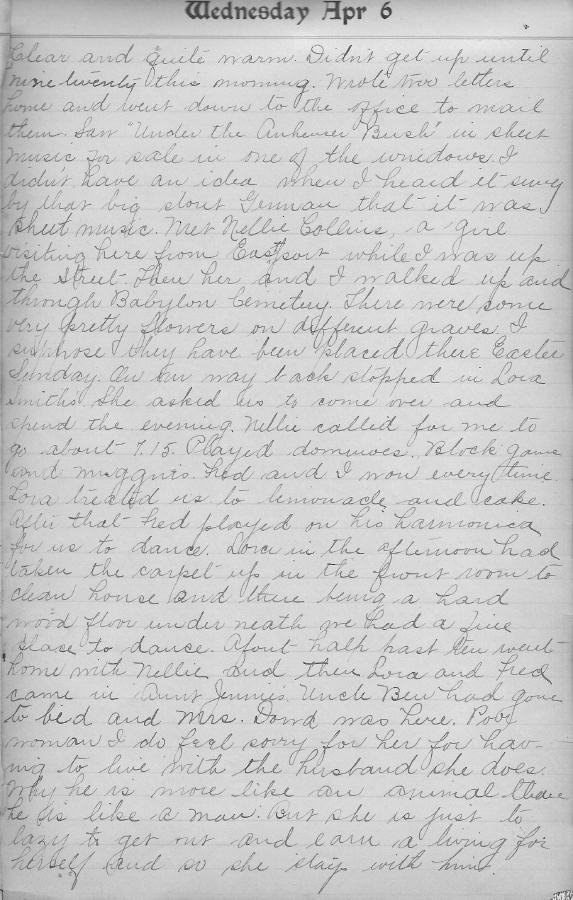 Wednesday Apr 6
Clear and quite warm. Didn't get up until
nine twenty this morning. Wrote two letters
home and went down to the office to mail
them. Saw "Under the Anheuser Bush" in sheet
music for sale in one of the windows. I
didn't have an idea when I heard it sung
by that big stout German that it was
sheet music. Met Nellie Collins, a girl
visiting here from Eastport while I was up
the street. Then her and I walked up and
through Babylon Cemetery. There were some
very pretty flowers on different graves. I
suppose they have been placed there Easter
Sunday. On our way back stopped in Lora
Smiths. She asked us to come over and
spend the evening. Nellie called for me to
go about 7.15. Played dominoes. Block game
and muggins. Fred and I won every time.
Lora treated us to lemonade and cake.
After that Fred played on his harmonica
for us to dance. Lora in the afternoon had
taken the carpet up in the front room to
clean house and there being a hard
wood floor under neath we had a fine
place to dance. About half past ten went
home with Nellie and then Lora and Fred
came in Aunt Jennies. Uncle Ben had gone
to bed and Mrs. Dowd was here. Poor
woman I do feel sorry for her for hav-
ing to live with the husband she does.
Why he is more like an animal than
he is like a man. But she is just to
lazy to get out and earn a living for
herself and so she stays with him.